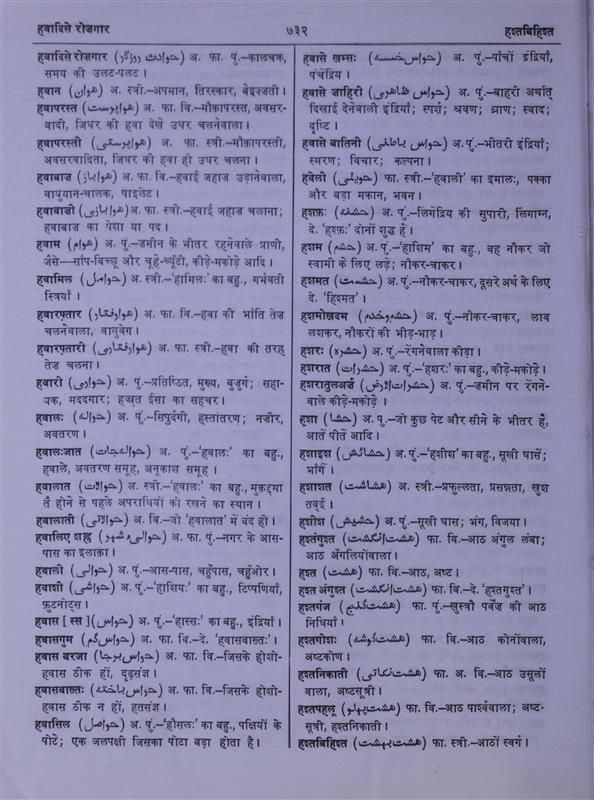 हवादिसे रोज़गार
७३२
हश्तबिहिश्त
हवादिसे रोज़गार (حوادث روزگار) अ. फा. पुं.–कालचक्र,
समय की उलट-पलट ।
हवान (هوان) अ. स्त्री.–अपमान, तिरस्कार, बेइज्ज़ती ।
हवापरस्त (هواپرست) अ. फा. वि.–मौक़ापरस्त, अवसर-
वादी, जिधर की हवा देखे उधर चलनेवाला ।
हवापरस्ती (هواپرستی) अ. फा. स्त्री.–मौक़ापरस्ती,
अवसरवादिता, जिधर की हवा हो उधर चलना ।
हवाबाज़ (هواباز) अ. फा. वि.–हवाई जहाज़ उड़ानेवाला,
वायुयान-चालक, पाइलेट ।
हवाबाज़ी (هوابازی) अ. फा. स्त्री.–हवाई जहाज़ चलाना;
हवाबाज़ का पेशा या पद ।
हवाम (هوام) अ. पुं.–ज़मीन के भीतर रहनेवाले प्राणी,
जैसे—साँप-बिच्छू और चूहे-च्यूंटी, कीड़े-मकोड़े आदि ।
हवामिल (حوامل) अ. स्त्री.–'हामिलः' का बहु., गर्भवती
स्त्रियाँ ।
हवारफ़्तार (هوارفتار) अ. फा. वि.–हवा की भाँति तेज़
चलनेवाला, वायुवेग ।
हवारफ़्तारी (هوارفتاری) अ. फा. स्त्री.–हवा की तरह
तेज़ चलना ।
हवारी (حواری) अ. पुं.–प्रतिष्ठित, मुख्य, बुज़ुर्ग; सहा-
यक, मददगार; हज़्रत ईसा का सहचर ।
हवालः (حواله) अ. पुं.–सिपुर्दगी, हस्तांतरण; नज़ीर,
अवतरण ।
हवालःजात (حوالہجات) अ. पुं.–'हवालः' का बहु.,
हवाले, अवतरण समूह, अनूकाश समूह ।
हवालात (حوالات) अ. स्त्री.–'हवालः' का बहु., मुक़द्दमा
तै होने से पहले अपराधियों को रखने का स्थान ।
हवालाती (حوالاتی) अ. वि.–जो 'हवालात' में बंद हो ।
हवालिए शह्र (حوالیءشہر) अ. फा. पुं.–नगर के आस-
पास का इलाक़ा ।
हवाली (حوالی) अ. पुं.–आस-पास, चहुँपास, चहुँओर ।
हवाशी (حواشی) अ. पुं.–'हाशियः' का बहु., टिप्पणियाँ,
फ़ुटनोट्स ।
हवास [ स्स ](حواس) अ. पुं.–'हास्सः' का बहु., इंद्रियाँ ।
हवासगुम (حواس گم) अ. फा. वि.–दे. 'हवासबाख़्तः' ।
हवास बरजा (حواس برجا) अ. फा. वि.–जिसके होशो-
हवास ठीक हों, दृढ़संज्ञ ।
हवासबाख़्तः (حواس باخته) अ. फा. वि.–जिसके होशो-
हवास ठीक न हों, हतसंज्ञ ।
हवासिल (حواصل) अ. पुं.–'हौसलः' का बहु., पक्षियों के
पोटे; एक जलपक्षी जिसका पोटा बड़ा होता है ।
हवासे ख़म्सः (حواس خمسه) अ. पुं.–पाँचों इंद्रियाँ,
पंचेंद्रिय ।
हवासे ज़ाहिरी (حواس ظاہری) अ. पुं.–बाहरी अर्थात्
दिखाई देनेवाली इंद्रियाँ; स्पर्श; श्रवण; घ्राण; स्वाद;
दृष्टि ।
हवासे बातिनी (حواس باطنی) अ. पुं.–भीतरी इंद्रियाँ;
स्मरण; विचार; कल्पना ।
हवेली (حویلی) फा. स्त्री.–'हवाली' का इमालः, पक्का
और बड़ा मकान, भवन ।
हशफ़ः (حشفه) अ. पुं.–लिंगेंद्रिय की सुपारी, लिंगाग्र,
दे. 'हश्फ़ः' दोनों शुद्ध हैं ।
हशम (حشم) अ. पुं.–'हाशिम' का बहु., वह नौकर जो
स्वामी के लिए लड़े; नौकर-चाकर ।
हशमत (حشمت) अ. पुं.–नौकर-चाकर, दूसरे अर्थ के लिए
दे. 'हिश्मत' ।
हशमोख़दम (حشم وخدم) अ. पुं.–नौकर-चाकर, लाव
लशकर, नौकरों की भीड़-भाड़ ।
हशरः (حشره) अ. पुं.–रेंगनेवाला कीड़ा ।
हशरात (حشرات) अ. पुं.–'हशरः' का बहु., कीड़े-मकोड़े ।
हशरातुलअर्ज़ (حشرات الارض) अ. पुं.–ज़मीन पर रेंगने-
वाले कीड़े-मकोड़े ।
हशा (حشا) अ. पुं.–जो कुछ पेट और सीने के भीतर है,
आतें पीतें आदि ।
हशाइश (حشائش) अ. पुं.–'हशीश' का बहु., सूखी घासें;
भाँगें ।
हशाशत (هشاشت) अ. स्त्री.–प्रफुल्लता, प्रसन्नता, ख़ुश
तब्ई ।
हशीश (حشیش) अ. पुं.–सूखी घास; भंग, विजया ।
हश्तंगुश्त (هشت انگشت) फा. वि.–आठ अंगुल लंबा;
आठ अँगलियोंवाला ।
हश्त (هشت) फा. वि.–आठ, अष्ट ।
हश्त अंगुश्त (هشت انگشت) फा. वि.–दे. 'हश्तंगुश्त' ।
हश्तगंज (هشت گنج) फा. पुं.–ख़ुस्रौ पर्वेज़ की आठ
निधियाँ ।
हश्तगोशः (هشت گوشه) फा. वि.–आठ कोनोंवाला,
अष्टकोण ।
हश्तनिकाती (هشت نکاتی) फा. अ. वि.–आठ उसूलों
वाला, अष्टसूत्री ।
हश्तपहलू (هشت پہلو) फा. वि.–आठ पार्श्ववाला; अष्ट-
सूत्री, हश्तनिकाती ।
हश्तबिहिश्त (هشت بہشت) फा. स्त्री.–आठों स्वर्ग ।